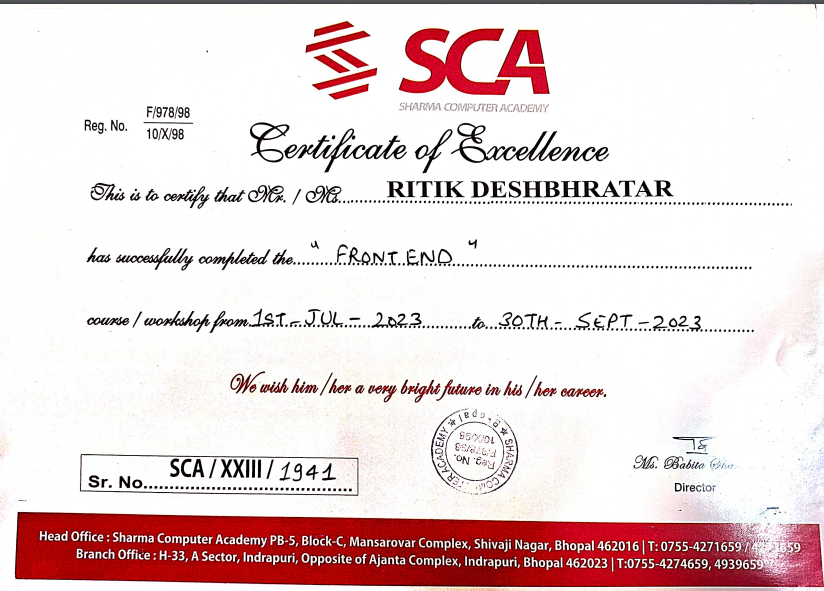 SCA
SHARMA COMPUTER ACADEMY
Reg. No. F/978/98
10/X/98
Certificate of Excellence
This is to certify that Mr. / Ms. RITIK DESHBHRATAR
has successfully completed the "FRONT END"
course / workshop from 1ST - JUL - 2023 to 30TH - SEPT - 2023
We wish him / her a very bright future in his / her career.
SHARMA COMPUTER ACADEMY ★ Bhopal ★
Reg. No.
F/978/98
10/X/98
Sr. No. SCA / XXIII / 1941
Ms. Babita
Director
Head Office : Sharma Computer Academy PB-5, Block-C, Mansarovar Complex, Shivaji Nagar, Bhopal 462016 | T: 0755-4271659 /
Branch Office : H-33, A Sector, Indrapuri, Opposite of Ajanta Complex, Indrapuri, Bhopal 462023 | T:0755-4274659, 4939659